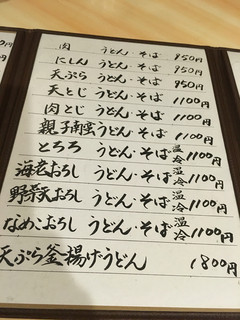 肉 うどん・そば 950円
にしん うどん・そば 950円
天ぷら うどん・そば 950円
天とじ うどん・そば 1100円
肉とじ うどん・そば 1100円
親子南蛮 うどん・そば 1100円
とろろ うどん・そば 温冷 1100円
海老おろし うどん・そば 温冷 1100円
野菜天おろし うどん・そば 温冷 1100円
なめこおろし うどん・そば 温冷 1100円
天ぷら釜揚げうどん 1800円